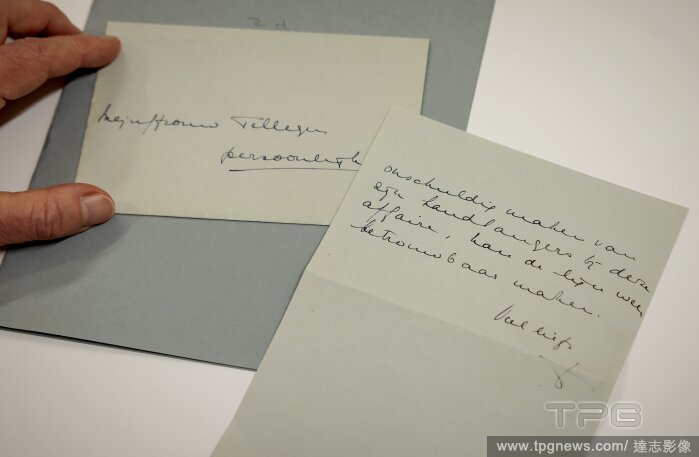 2d
Mejuffrouw Tellegen
persoonlijk
onschuldig maken van
zijn handlangers bij deze
affaire, kan de lijn weer
betrouwbaar maken.
Veel liefs
TPG
www.tpgnews.com/ 達志影像